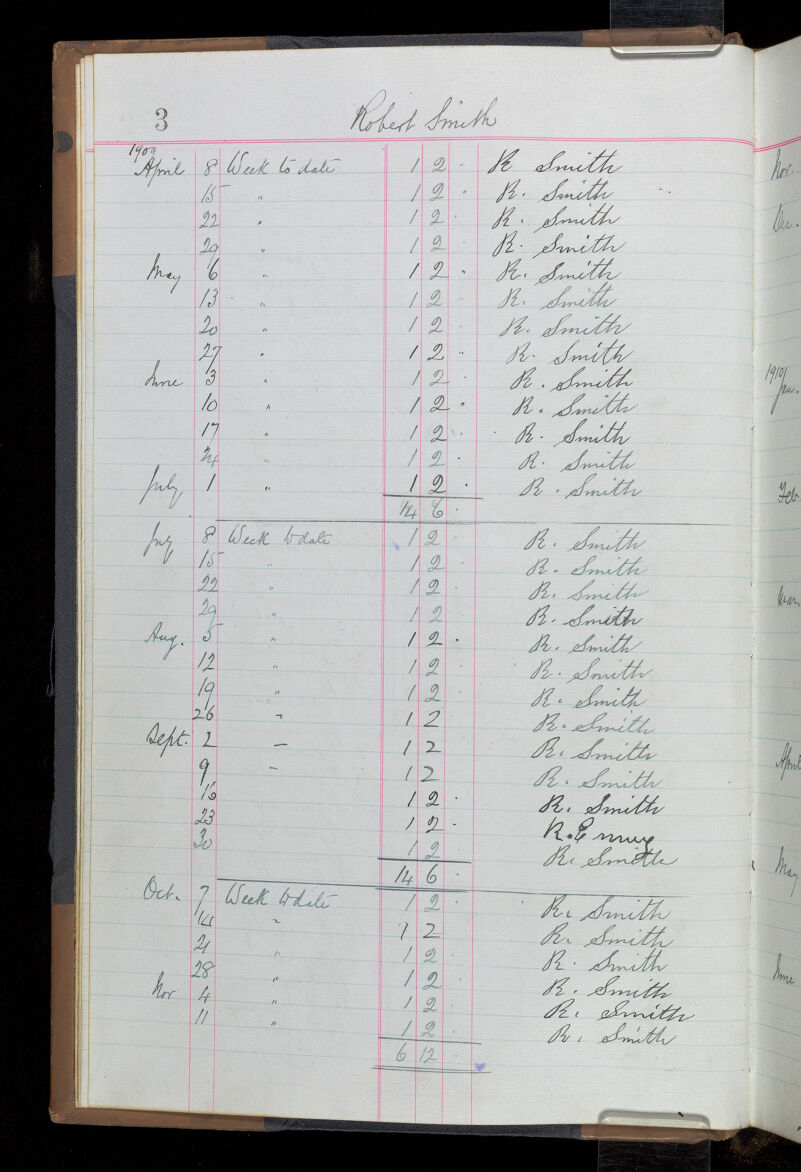 3 Robert Smith
1909
April 8 Week to date 1 2 . R Smith
15 " 1 2 . R. Smith
22 " 1 2 . R. Smith
29 " 1 2 R. Smith
May 6 " 1 2 . R. Smith
13 " 1 2 R. Smith
20 " 1 2 R. Smith
27 " 1 2 .. R. Smith
June 3 " 1 2 . R. Smith
10 " 1 2 . R. Smith
17 " 1 2 . R. Smith
24 " 1 2 . R. Smith
July 1 " 1 2 . R. Smith
14 6 .
July 8 Week to date 1 2 . R. Smith
15 " 1 2 . R. Smith
22 " 1 2 . R. Smith
29 " 1 2 R. Smith
Aug. 5 " 1 2 . R. Smith
12 " 1 2 R. Smith
19 " 1 2 R. Smith
26 " 1 2 R. Smith
Sept. 2 — 1 2 R. Smith
9 — 1 2 R. Smith
16 1 2 . R. Smith
23 1 2 .
30 1 2 . R. Smith
14 6 .
Oct. 7 Week to date 1 2 . R. Smith
14 " 1 2 R. Smith
21 " 1 2 . R. Smith
28 " 1 2 . R. Smith
Nov 4 " 1 2 . R. Smith
11 " 1 2 . R. Smith
6 12 .
Nov.
Dec.
1910
Jan.
Feb
Mar.
April
May
June